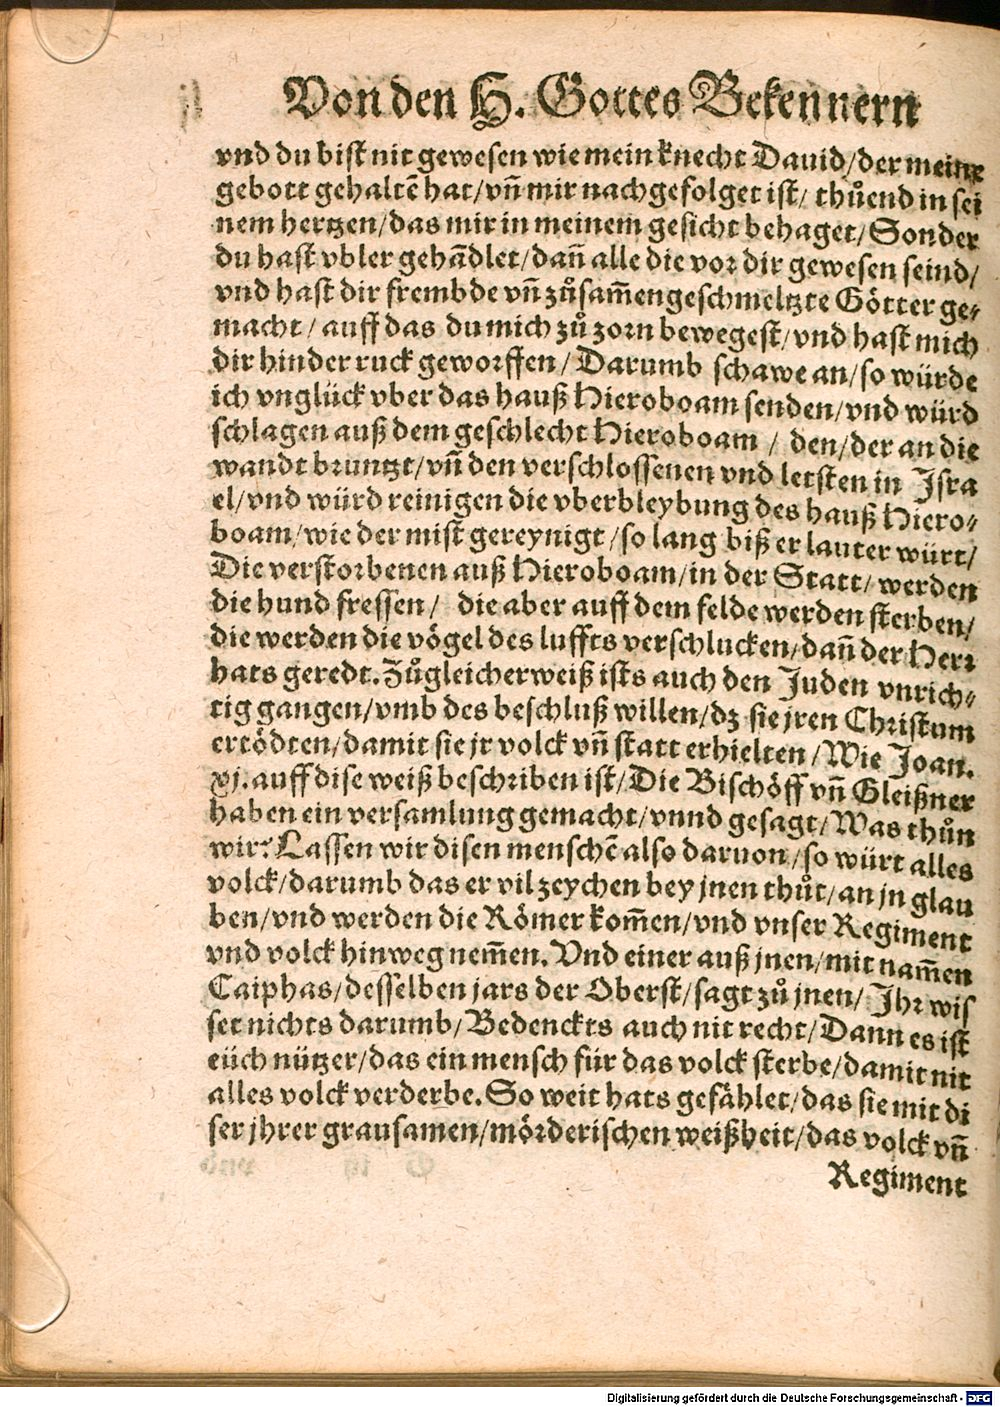 Von den H. Gottes Bekennern
vnd du bist nit gewesen wie mein knecht Dauid/der meine
gebott gehaltẽ hat/vn̄ mir nachgefolget ist/ thůend in sei
nem hertzen/das mir in meinem gesicht behaget/Sonder
du hast vbler gehãdlet/dan̄ alle die vor dir gewesen seind/
vnd hast dir frembde vn̄ zůsam̄engeschmeltzte Götter ge⸗
macht/ auff das du mich zů zorn bewegest/vnd hast mich
dir hinder ruck geworffen/Darumb schawe an/so würde
ich vnglück vber das hauß Hieroboam senden/vnd würd
schlagen auß dem geschlecht Hieroboam/ den/der an die
wandt bruntzt/vn̄ den verschlossenen vnd letsten in Isra
el/vnd würd reinigen die vberbleybung des hauß Hiero⸗
boam/wie der mist gereynigt/so lang biß er lauter würt/
Die verstorbenen auß Hieroboam/in der Statt/werden
die hund fressen/ die aber auff dem felde werden sterben/
die werden die vögel des luffts verschlucken/dan̄ der Herr
hats geredt. Zůgleicherweiß ists auch den Juden vnrich⸗
tig gangen/vmb des beschluß willen/dz sie jren Christum
ertödten/damit sie jr volck vn̄ statt erhielten/Wie Joan.
xj. auff dise weiß beschriben ist/Die Bischöff vn̄ Gleißner
haben ein versamlung gemacht/vnnd gesagt/Was thůn
wir? Lassen wir disen menschẽ also daruon/so würt alles
volck/darumb das er vil zeychen bey jnen thůt/an jn glau
ben/vnd werden die Römer kom̄en/vnd vnser Regiment
vnd volck hinweg nem̄en. Vnd einer auß jnen/mit nam̄en
Caiphas/desselben jars der Oberst/sagt zů jnen/Ihr wis
set nichts darumb/Bedenckts auch nit recht/Dann es ist
eüch nützer/das ein mensch für das volck sterbe/damit nit
alles volck verderbe. So weit hats gefählet/das sie mit di
ser jhrer grausamen/mörderischen weißheit/das volck vn̄
Regiment
Digitalisierung gefördert durch die Deutsche Forschungsgemeinschaft - DFG